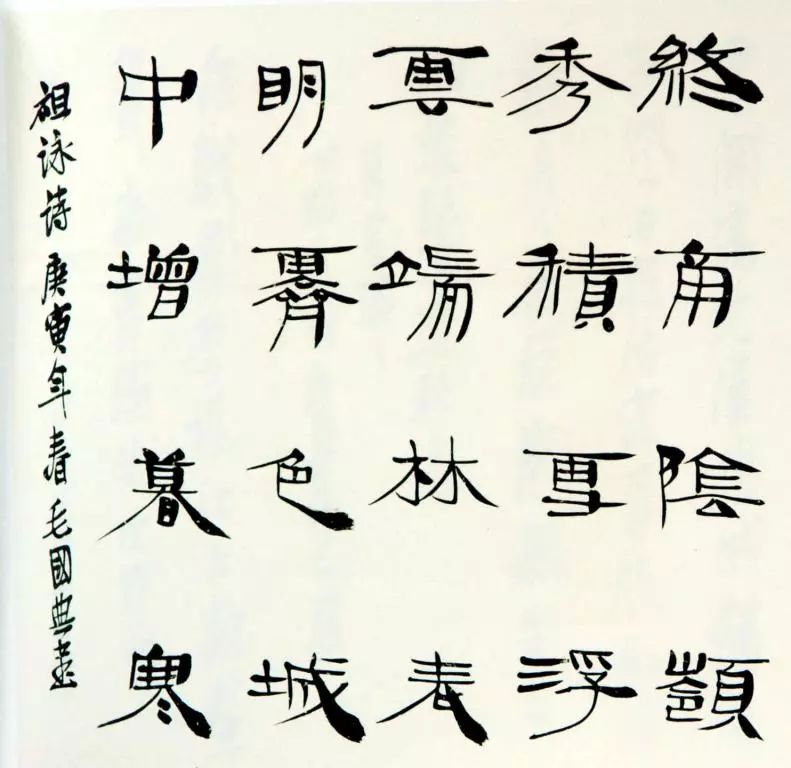 終南陰嶺
秀積雪浮
雲端林表
明霽色城
中增暮寒
祖詠詩 庚寅年春毛國典書